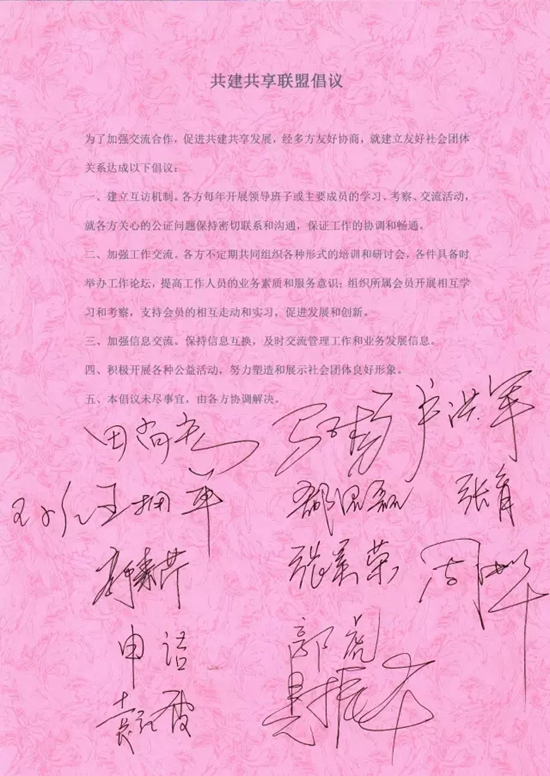 共建共享联盟倡议
为了加强交流合作，促进共建共享发展，经多方友好协商，就建立友好社会团体
关系达成以下倡议：
一、建立互访机制。各方每年开展领导班子或主要成员的学习、考察、交流活动，
就各方关心的公证问题保持密切联系和沟通，保证工作的协调和畅通。
二、加强工作交流。各方不定期共同组织各种形式的培训和研讨会，各件具备时
举办工作论坛，提高工作人员的业务素质和服务意识；组织所属会员开展相互学
习和考察，支持会员的相互走动和实习，促进发展和创新。
三、加强信息交流。保持信息互换，及时交流管理工作和业务发展信息。
四、积极开展各种公益活动，努力塑造和展示社会团体良好形象。
五、本倡议未尽事宜，由各方协调解决。
卢洪军
张育
张景荣
申洁
郭虎